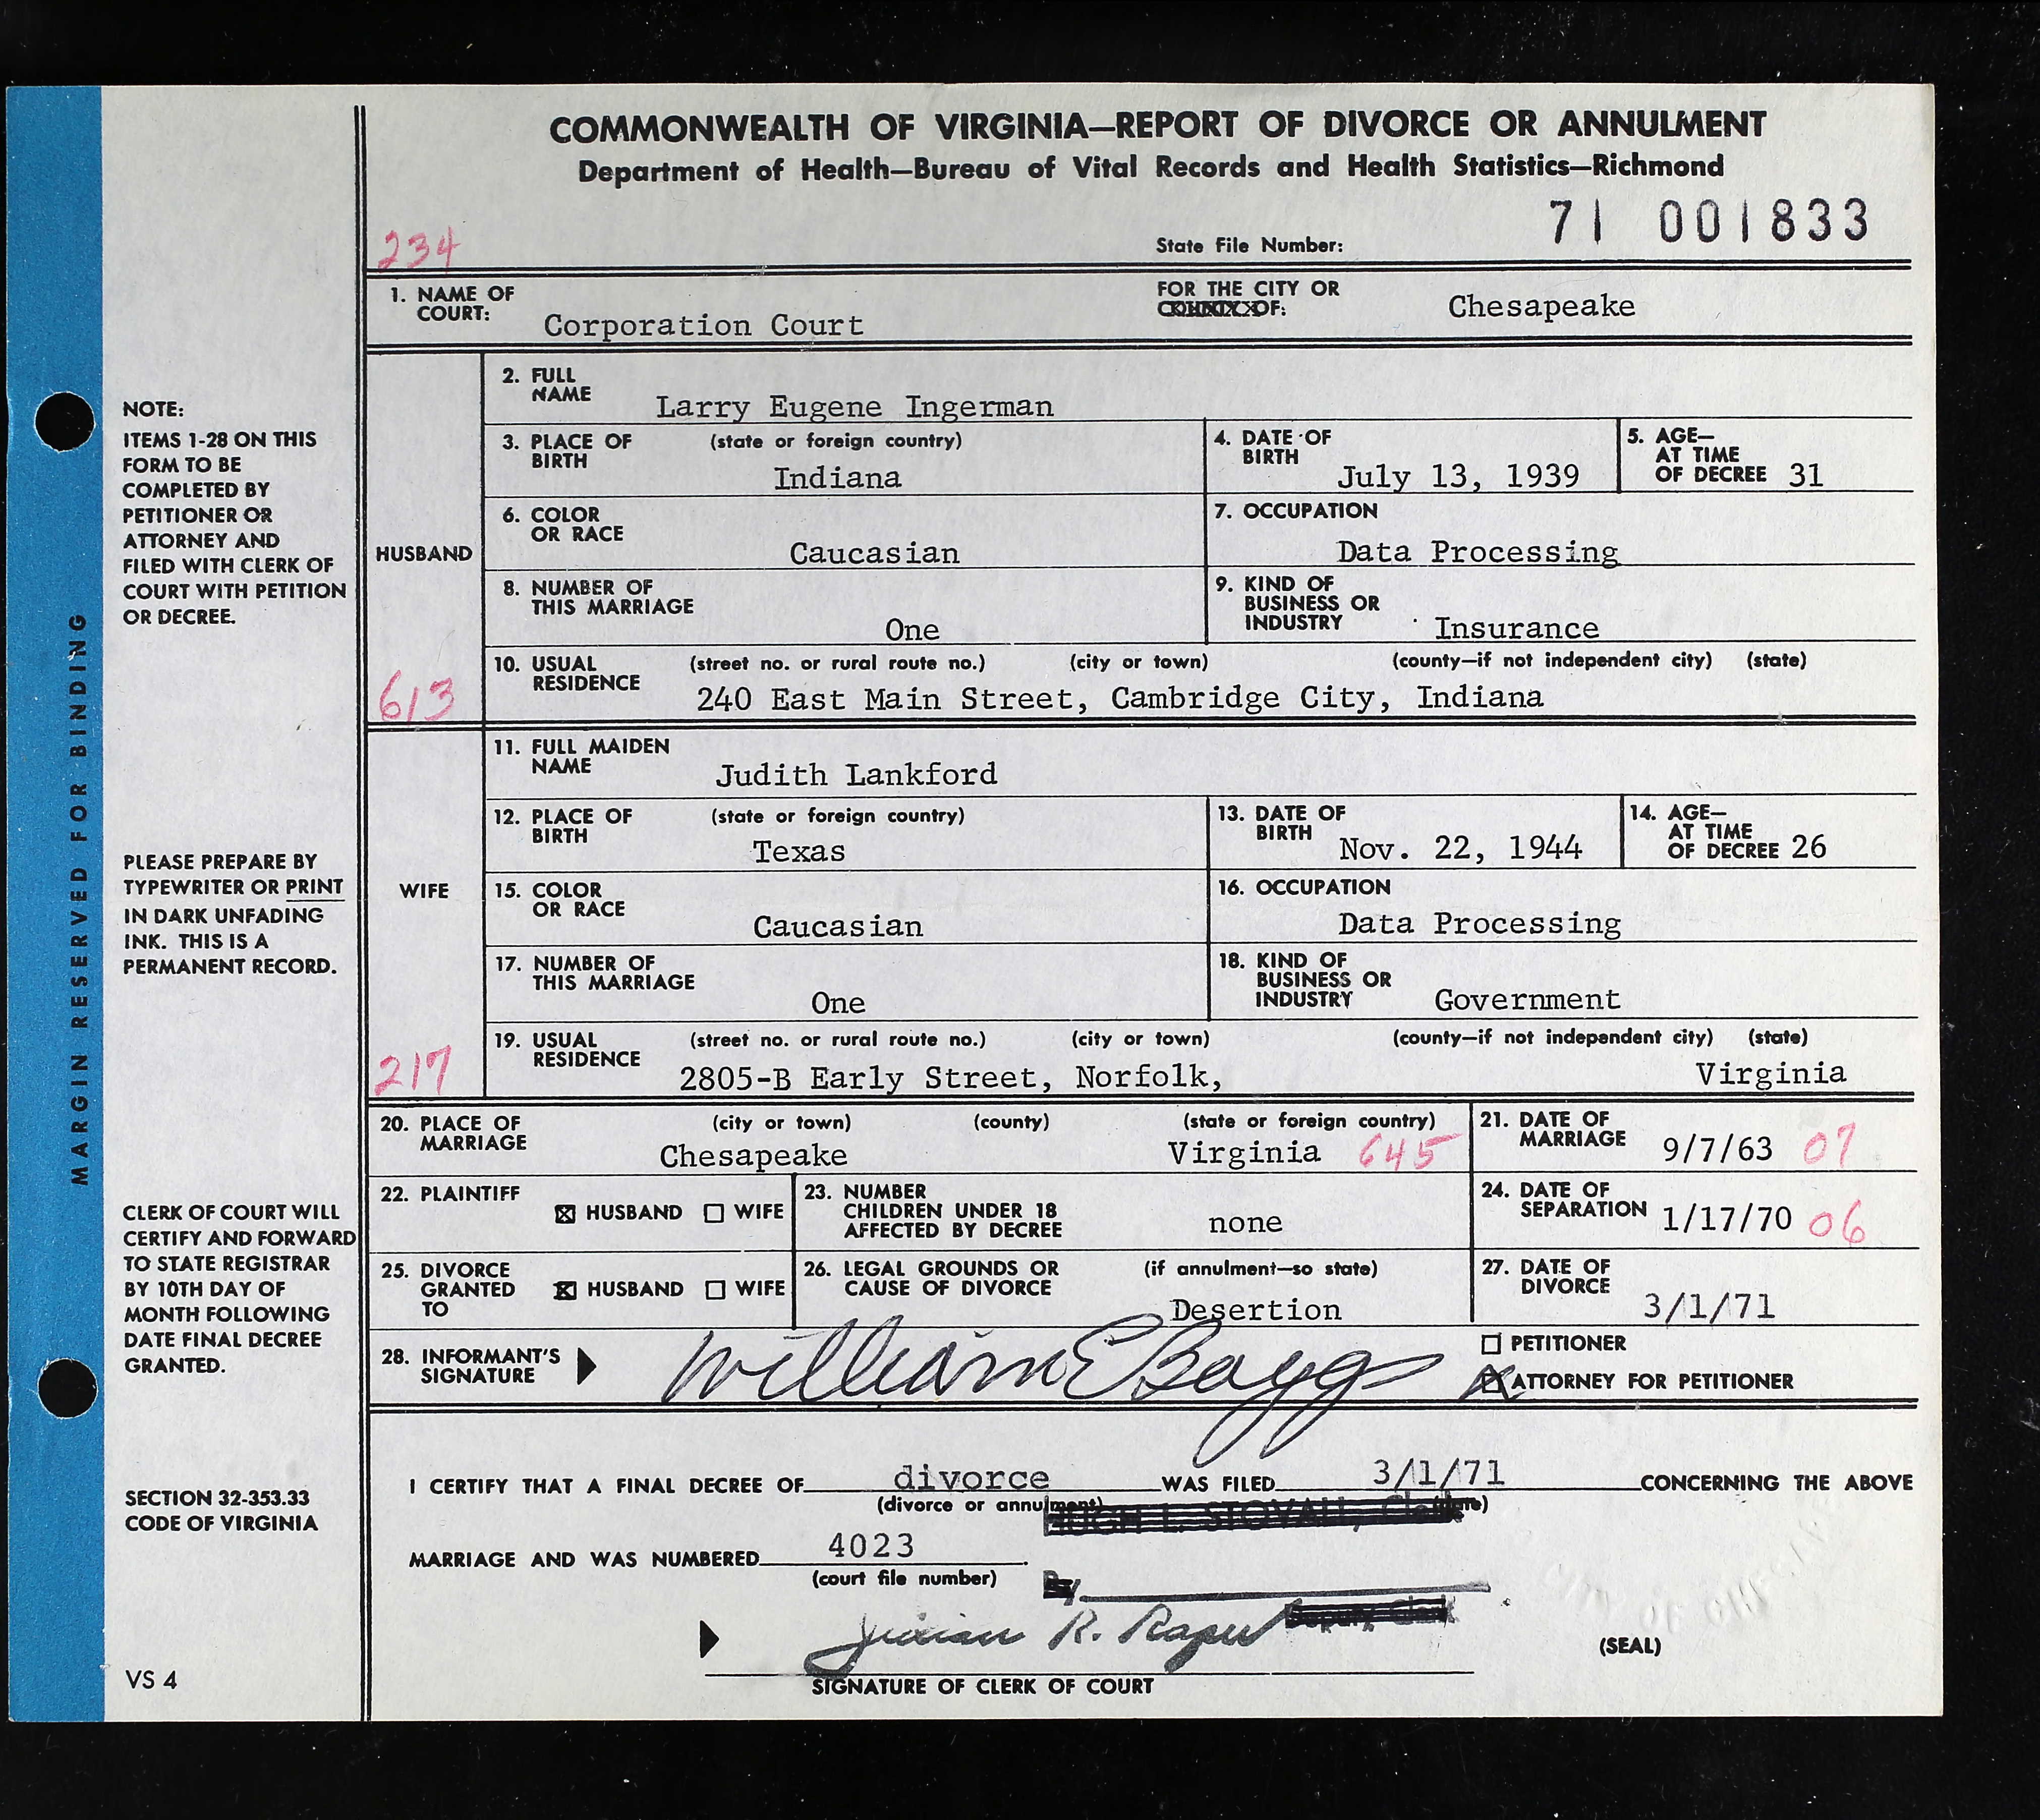 COMMONWEALTH OF VIRGINIA—REPORT OF DIVORCE OR ANNULMENT
Department of Health—Bureau of Vital Records and Health Statistics—Richmond
234
State File Number: 71 001833
1. NAME OF COURT: Corporation Court FOR THE CITY OR OF: Chesapeake
HUSBAND
2. FULL NAME Larry Eugene Ingerman
3. PLACE OF BIRTH (state or foreign country) Indiana
4. DATE OF BIRTH July 13, 1939
5. AGE— AT TIME OF DECREE 31
6. COLOR OR RACE Caucasian
7. OCCUPATION Data Processing
8. NUMBER OF THIS MARRIAGE One
9. KIND OF BUSINESS OR INDUSTRY Insurance
10. USUAL RESIDENCE (street no. or rural route no.) (city or town) (county—if not independent city) (state)
240 East Main Street, Cambridge City, Indiana
613
WIFE
11. FULL MAIDEN NAME Judith Lankford
12. PLACE OF BIRTH (state or foreign country) Texas
13. DATE OF BIRTH Nov. 22, 1944
14. AGE— AT TIME OF DECREE 26
15. COLOR OR RACE Caucasian
16. OCCUPATION Data Processing
17. NUMBER OF THIS MARRIAGE One
18. KIND OF BUSINESS OR INDUSTRY Government
19. USUAL RESIDENCE (street no. or rural route no.) (city or town) (county—if not independent city) (state)
2805-B Early Street, Norfolk, Virginia
217
20. PLACE OF MARRIAGE (city or town) (county) (state or foreign country)
Chesapeake Virginia 645
21. DATE OF MARRIAGE 9/7/63 07
22. PLAINTIFF ☒ HUSBAND ☐ WIFE
23. NUMBER CHILDREN UNDER 18 AFFECTED BY DECREE none
24. DATE OF SEPARATION 1/17/70 06
25. DIVORCE GRANTED TO ☒ HUSBAND ☐ WIFE
26. LEGAL GROUNDS OR CAUSE OF DIVORCE (if annulment—so state) Desertion
27. DATE OF DIVORCE 3/1/71
28. INFORMANT'S SIGNATURE William E Baggs
☐ PETITIONER
☒ ATTORNEY FOR PETITIONER
I CERTIFY THAT A FINAL DECREE OF divorce WAS FILED 3/1/71 CONCERNING THE ABOVE
(divorce or annulment) (date)
HUGH L. STOVALL, Clerk
MARRIAGE AND WAS NUMBERED 4023
(court file number)
By
Deputy Clerk
R.
(SEAL)
SIGNATURE OF CLERK OF COURT
MARGIN RESERVED FOR BINDING
NOTE:
ITEMS 1-28 ON THIS
FORM TO BE
COMPLETED BY
PETITIONER OR
ATTORNEY AND
FILED WITH CLERK OF
COURT WITH PETITION
OR DECREE.
PLEASE PREPARE BY
TYPEWRITER OR PRINT
IN DARK UNFADING
INK. THIS IS A
PERMANENT RECORD.
CLERK OF COURT WILL
CERTIFY AND FORWARD
TO STATE REGISTRAR
BY 10TH DAY OF
MONTH FOLLOWING
DATE FINAL DECREE
GRANTED.
SECTION 32-353.33
CODE OF VIRGINIA
VS 4